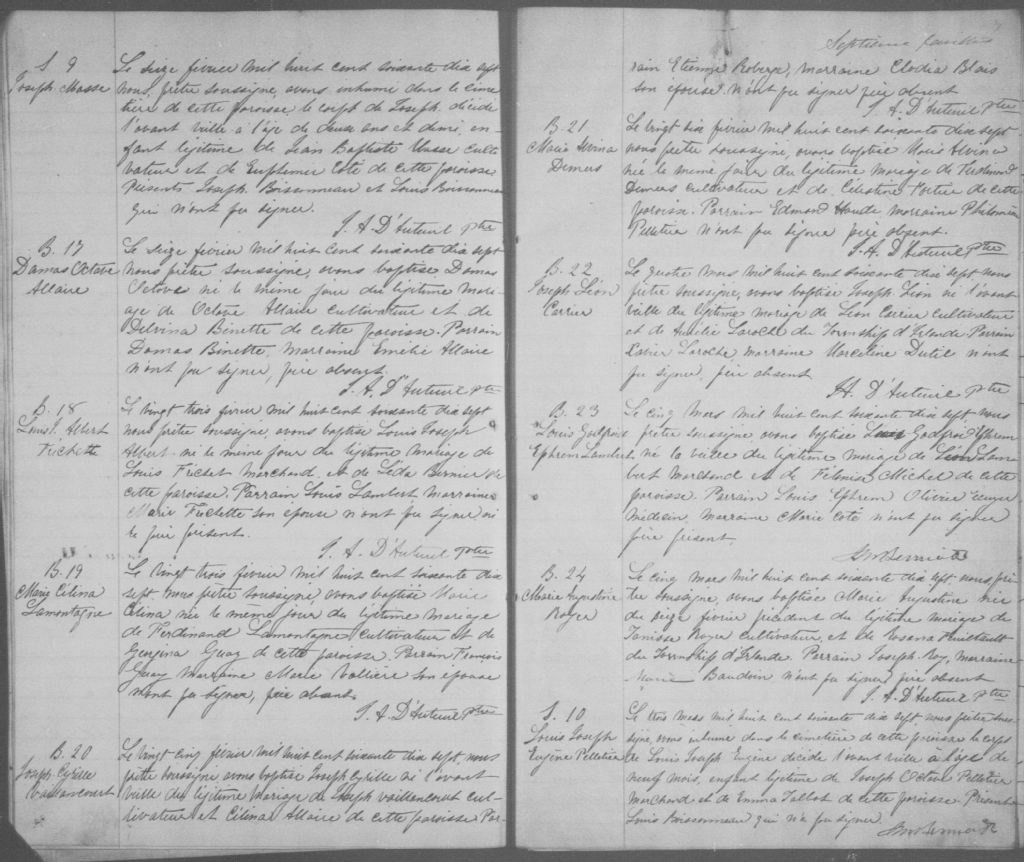 S. 9
Joseph Masse
Le seize février mil huit cent soixante dix sept
nous, prêtre soussigné, avons inhumé dans le cime
tière de cette paroisse le corps de Joseph, décédé
l'avant veille à l'âge de deux ans et demi, en-
fant légitime de Jean Baptiste Masse culti
vateur et de Euphemie Coté de cette paroisse
Présents Joseph Boissonneau et Louis Boissonneau
qui n'ont pu signer.
J. A. D'Auteuil ptre
B. 17
Damas Octave
Allaire
Le seize février mil huit cent soixante dix sept
nous prêtre soussigné, avons baptisé Damas
Octave né le même jour du légitime mari-
age de Octave Allaire cultivateur et de
Delvina Binette de cette paroisse. Parrain
Damas Binette, Marraine Emélie Allaire
n'ont pu signer, père absent.
J. A. D'Auteuil ptre
B. 18
Louis J. Albert
Fréchette
Le vingt trois février mil huit cent soixante dix sept
nous prêtre soussigné, avons baptisé Louis Joseph
Albert né le même jour du légitime mariage de
Louis Fréchet Marchand et de Léda Bernier de
cette paroisse. Parrain Louis Lambert Marraine
Marie Fréchette son épouse n'ont pu signer ni
le père présent.
J. A. D'Auteuil ptre
B. 19
Marie Célina
Lamontagne
Le vingt trois février mil huit cent soixante dix
sept nous prêtre soussigné, avons baptisé Marie
Célina née le même jour du légitime mariage
de Ferdinand Lamontagne cultivateur et de
Georgina Guay de cette paroisse. Parrain François
Guay Marraine Merle Vallière son épouse
n'ont pu signer, père absent.
J. A. D'Auteuil ptre
B. 20
Joseph Cyrille
Vaillancourt
Le vingt cinq février mil huit cent soixante dix sept, nous
prêtre soussigné avons baptisé Joseph Cyrille né l'avant
veille du légitime mariage de Joseph Vaillancourt cul-
tivateur et Célina Allaire de cette paroisse Par-
7
Septième feuillet
rain Etienne Roberge, marraine Elodia Blais
son épouse n'ont pu signer père absent
J. A. D'Auteuil ptre
B. 21
Marie Alvina
Demers
Le vingt six février mil huit cent soixante dix sept
nous prêtre soussigné, avons baptisé Marie Alvina
née le même jour du légitime mariage de Ferdinand
Demers cultivateur et de Célestine Fortier de cette
paroisse. Parrain Edmond Houde marraine Philomène
Pelletier n'ont pu signer père absent.
J. A. D'Auteuil ptre
B. 22
Joseph Léon
Carrier
Le quatre mars mil huit cent soixante dix sept nous
prêtre soussigné, avons baptisé Joseph Léon né l'avant
veille du légitime mariage de Léon Carrier cultivateur
et de Amélie Laroche du Township d'Irlande Parrain
Xavier Laroche marraine Marceline Dutil n'ont
pu signer, père absent
J. A. D'Auteuil ptre
B. 23
Louis Godfroid
Ephrem Lambert
Le cinq Mars mil huit cent soixante dix sept nous
prêtre soussigné, avons baptisé Louis Godfroi Ephrem
né la veille du légitime mariage de Lam
bert Marchand et de Michel de cette
paroisse. Parrain Louis Ephrem Olivier écuyer
médecin, marraine Marie Coté n'ont pu signer
père présent.
B. 24
Marie Augustine
Royer
Le cinq mars mil huit cent soixante dix sept, nous prê
tre soussigné, avons baptisé Marie Augustine née
du seize février précédent du légitime mariage de
Royer cultivateur, et de Rosana
du Township d'Irlande. Parrain Joseph Roy, marraine
Marie Baudoin n'ont pu signer père absent
J. A. D'Auteuil ptre
S. 10
Louis Joseph
Eugène Pelletier
Le trois mars mil huit cent soixante dix sept, nous prêtre sous-
signé, avons inhumé dans le cimetière de cette paroisse le corps
de Louis Joseph Eugène décédé l'avant veille à l'âge de
neuf mois, enfant légitime de Joseph Octave Pelletier
Marchand et de Emma Talbot de cette paroisse. Présent
Louis Boissonneau qui n'a pu signer